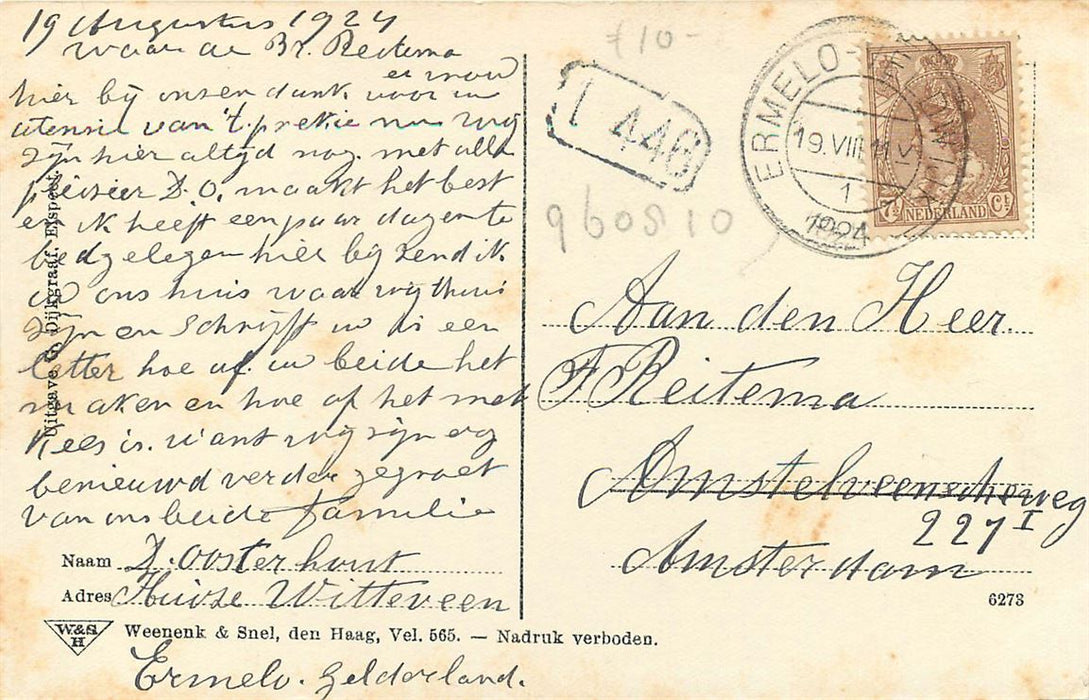 19 Augustus 1924
waarde Br. Reitema
en vrouw
hier bij onsen dank voor uw
atensie van 't prekie nu wij
zijn hier altijd nog met alle
pleisier D.O. maakt het best
en ik heeft een paar dagen te
bed gelegen hier bij zend ik
u ons huis waar wij thuis
zijn en schrijft uw is een
letter hoe of uw beide het
maken en hoe of het met
Kees is. want wij zijn erg
benieuwd verder gegroet
van ons beide familie
Naam D. Oosterhout
Adres Huize Witteveen
W.&S. H
Weenenk & Snel, den Haag, Vel. 565. — Nadruk verboden.
Ermelo. Gelderland.
Uitgave G. Dijkgraaf, Elspeet.
f10-
L 446
960810
ERMELO
19.VIII.11-V
1
1924
7½ NEDERLAND Ct
Aan den Heer.
F Reitema
Amstelveenscheweg
227 I
Amsterdam
6273